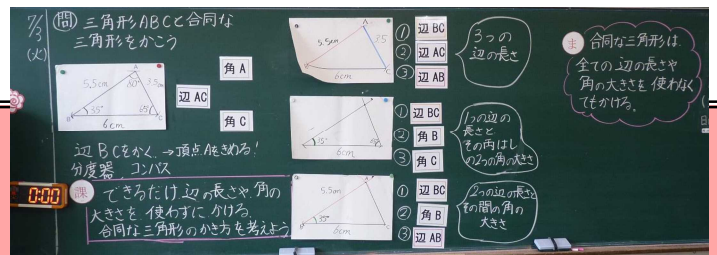 7/3
(火)
問 三角形ABCと合同な
三角形をかこう
A
5.5cm
80°
3.5cm
35°
65°
B
6cm
C
角A
辺AC
角C
辺BCをかく。→頂点Aをきめる!
分度器、コンパス
0:00
課 できるだけ辺の長さや、角の
大きさを使わずにかける、
合同な三角形のかき方を考えよう
A
5.5cm
3.5
B
6cm
C
① 辺BC
② 辺AC
③ 辺AB
3つの
辺の長さ
35°
6cm
① 辺BC
② 角B
③ 角C
1つの辺の
長さと
その両はし
の2つの角の大きさ
A
5.5cm
35°
B
6cm
C
① 辺BC
② 角B
③ 辺AB
2つの辺の長さと
その間の角の
大きさ
ま 合同な三角形は、
全ての辺の長さや
角の大きさを使わなく
てもかける。